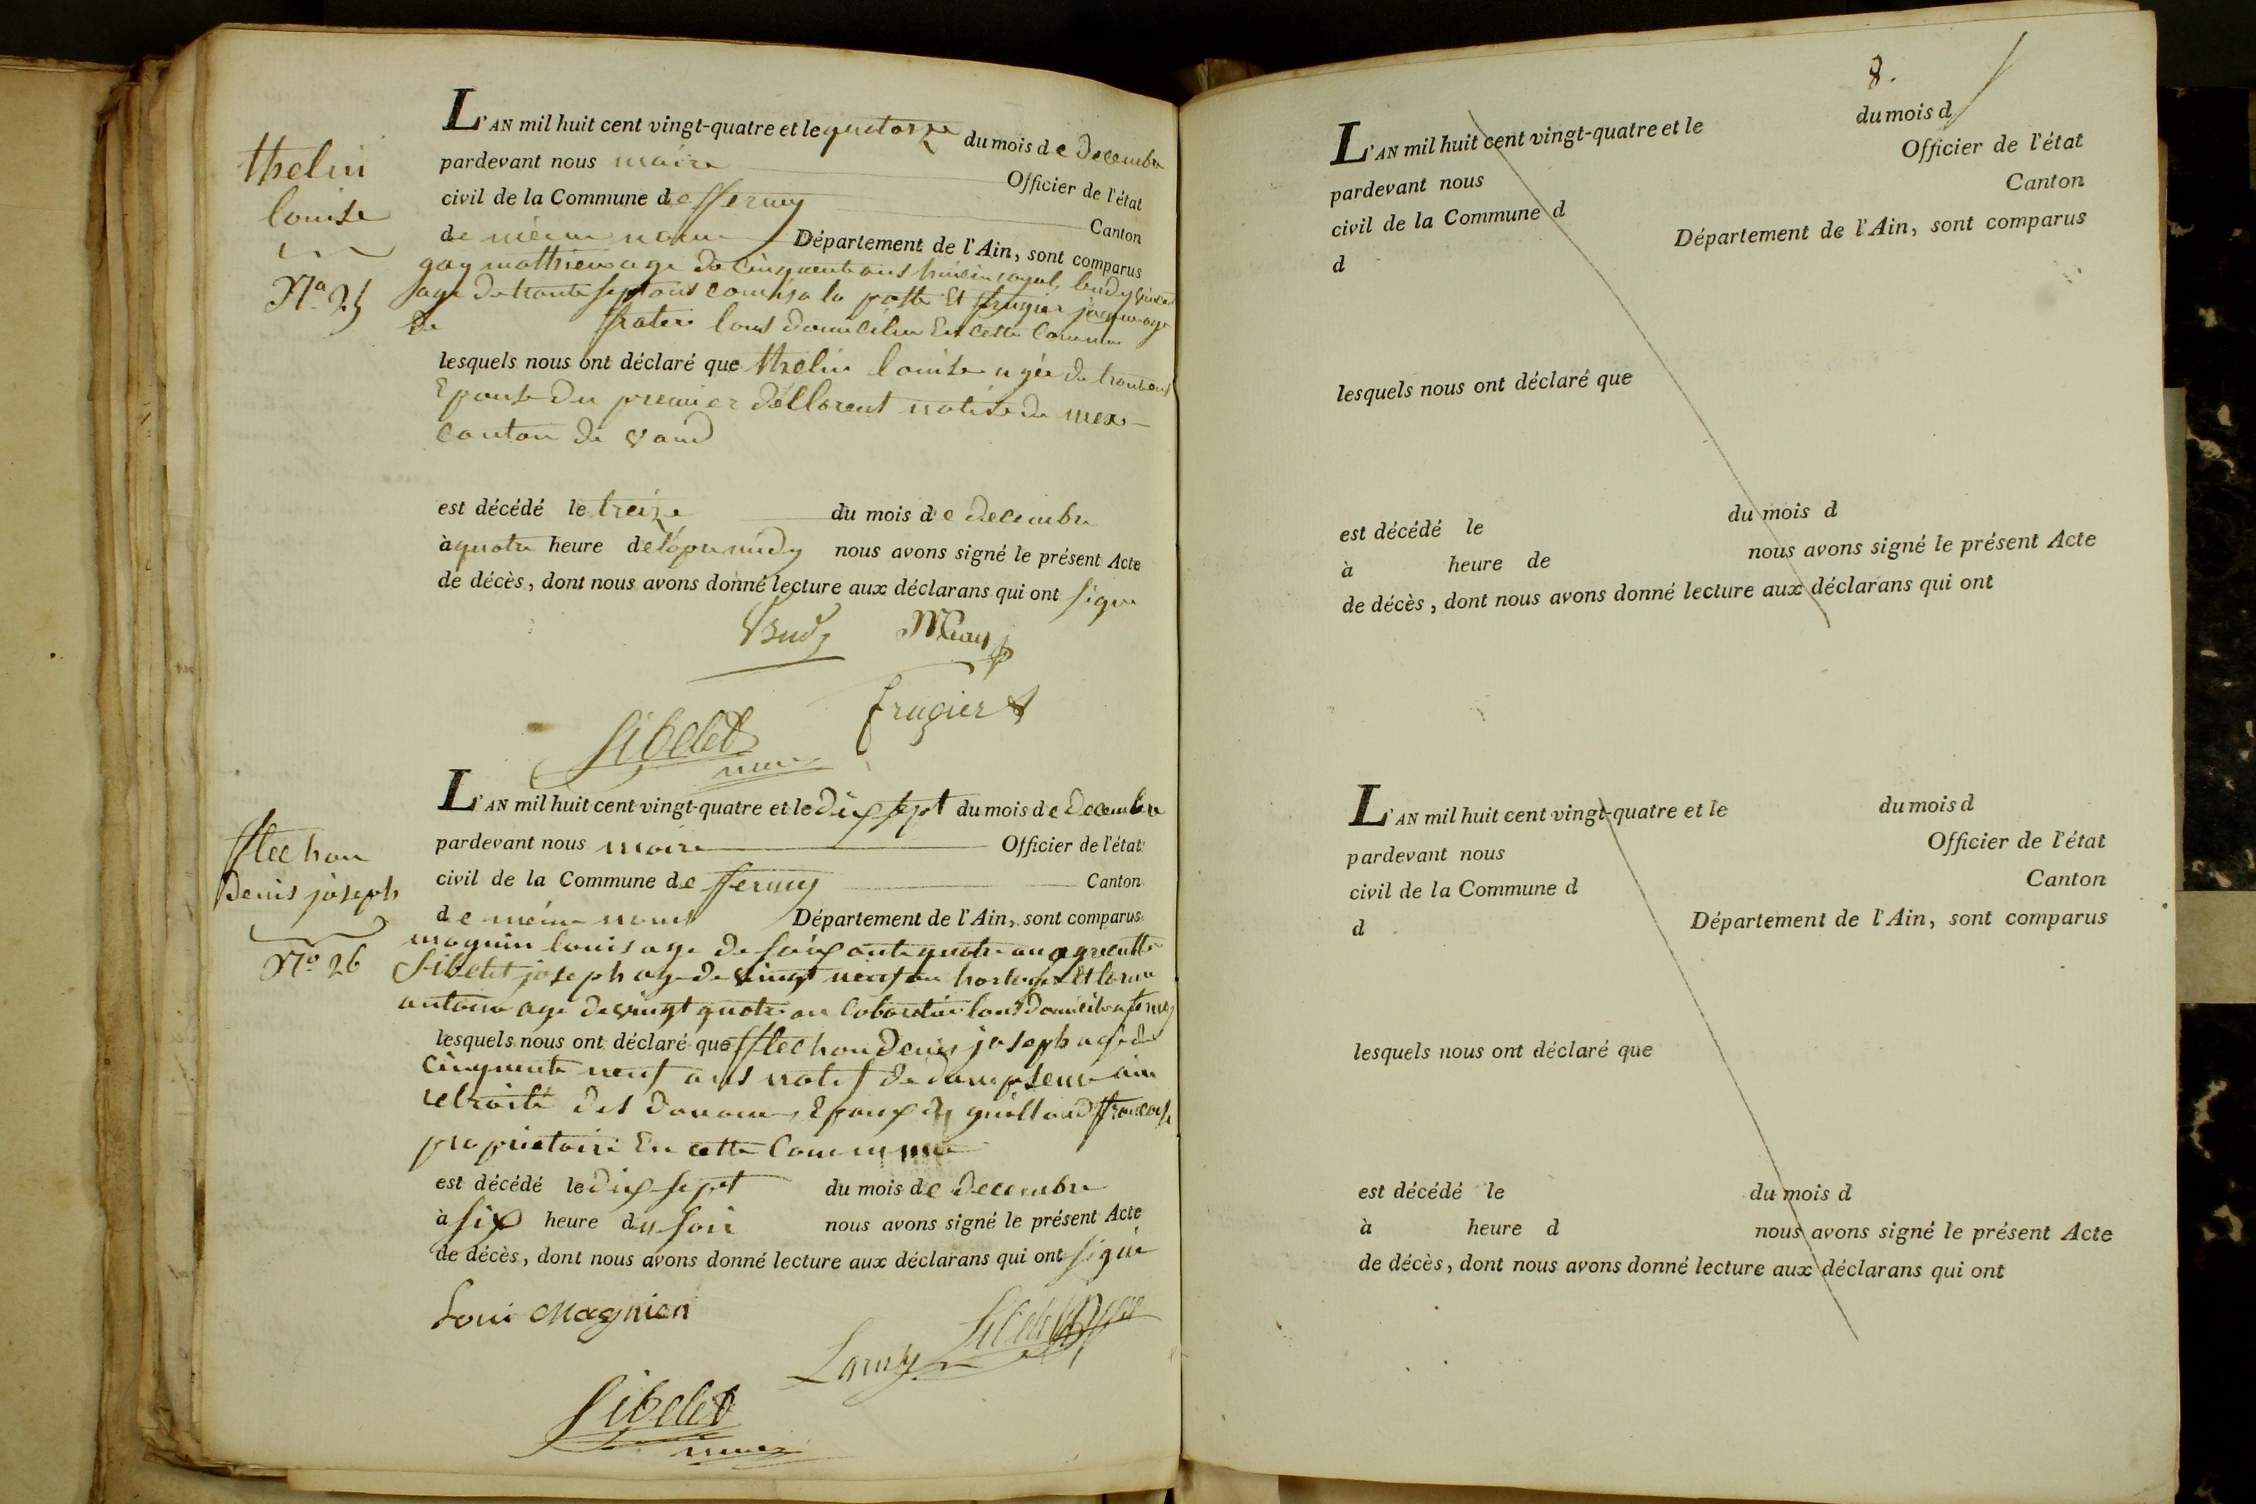 thelin
louise
No. 25
L'AN mil huit cent vingt-quatre et le quatorze du mois de decembre
pardevant nous maire Officier de l'état
civil de la Commune de fferney Canton
de même nom Département de l'Ain, sont comparus
gay mathieu age de cinquante ans
age de trente sept ans comis a la poste Et frugier
de frater tous domicilies En cette Commune
lesquels nous ont déclaré que thelin louise agée de
Epouse du premier natise de mex
canton de vaud
est décédé le treize du mois de decembre
à quatre heure de nous avons signé le présent Acte
de décès, dont nous avons donné lecture aux déclarans qui ont signe
Budy MGay
frugier
Sibelet
maire
ffléchon
Denis joseph
No. 26
L'AN mil huit cent vingt-quatre et le dix sept du mois de decembre
pardevant nous maire Officier de l'état
civil de la Commune de fferney Canton
de même nom Département de l'Ain, sont comparus
magnin louis age de soixante quatre an
Sibelet joseph age de vingt neuf an horloger Et
antoine age de vingt quatre an tous
lesquels nous ont déclaré que fflechon Denis joseph age de
cinquante neuf ans natif de
retraité des douanes, Epoux de
proprietaire En cette Commune
est décédé le dix sept du mois de decembre
à six heure du soir nous avons signé le présent Acte
de décès, dont nous avons donné lecture aux déclarans qui ont signé
Loui Magnien
Sibelet
maire
8.
L'AN mil huit cent vingt-quatre et le du mois d
pardevant nous Officier de l'état
civil de la Commune d Canton
d Département de l'Ain, sont comparus
lesquels nous ont déclaré que
est décédé le du mois d
à heure de nous avons signé le présent Acte
de décès, dont nous avons donné lecture aux déclarans qui ont
L'AN mil huit cent vingt-quatre et le du mois d
pardevant nous Officier de l'état
civil de la Commune d Canton
d Département de l'Ain, sont comparus
lesquels nous ont déclaré que
est décédé le du mois d
à heure d nous avons signé le présent Acte
de décès, dont nous avons donné lecture aux déclarans qui ont